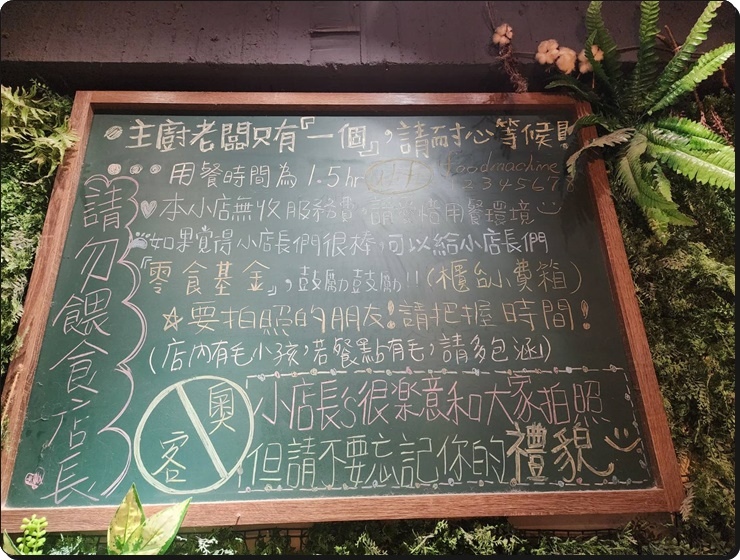 主廚老闆只有『一個』,請耐心等候!
用餐時間為1.5hr
foodmachine
2345678
本小店無收服務費,請珍惜用餐環境
如果覺得小店長們很棒,可以給小店長們
『零食基金』,鼓勵鼓勵!!(櫃台小費箱)
☆要拍照的朋友!請把握時間!
(店內有毛小孩,若餐點有毛,請多包涵)
請勿餵食店長
奧客
小店長s很樂意和大家拍照
但請不要忘記你的禮貌